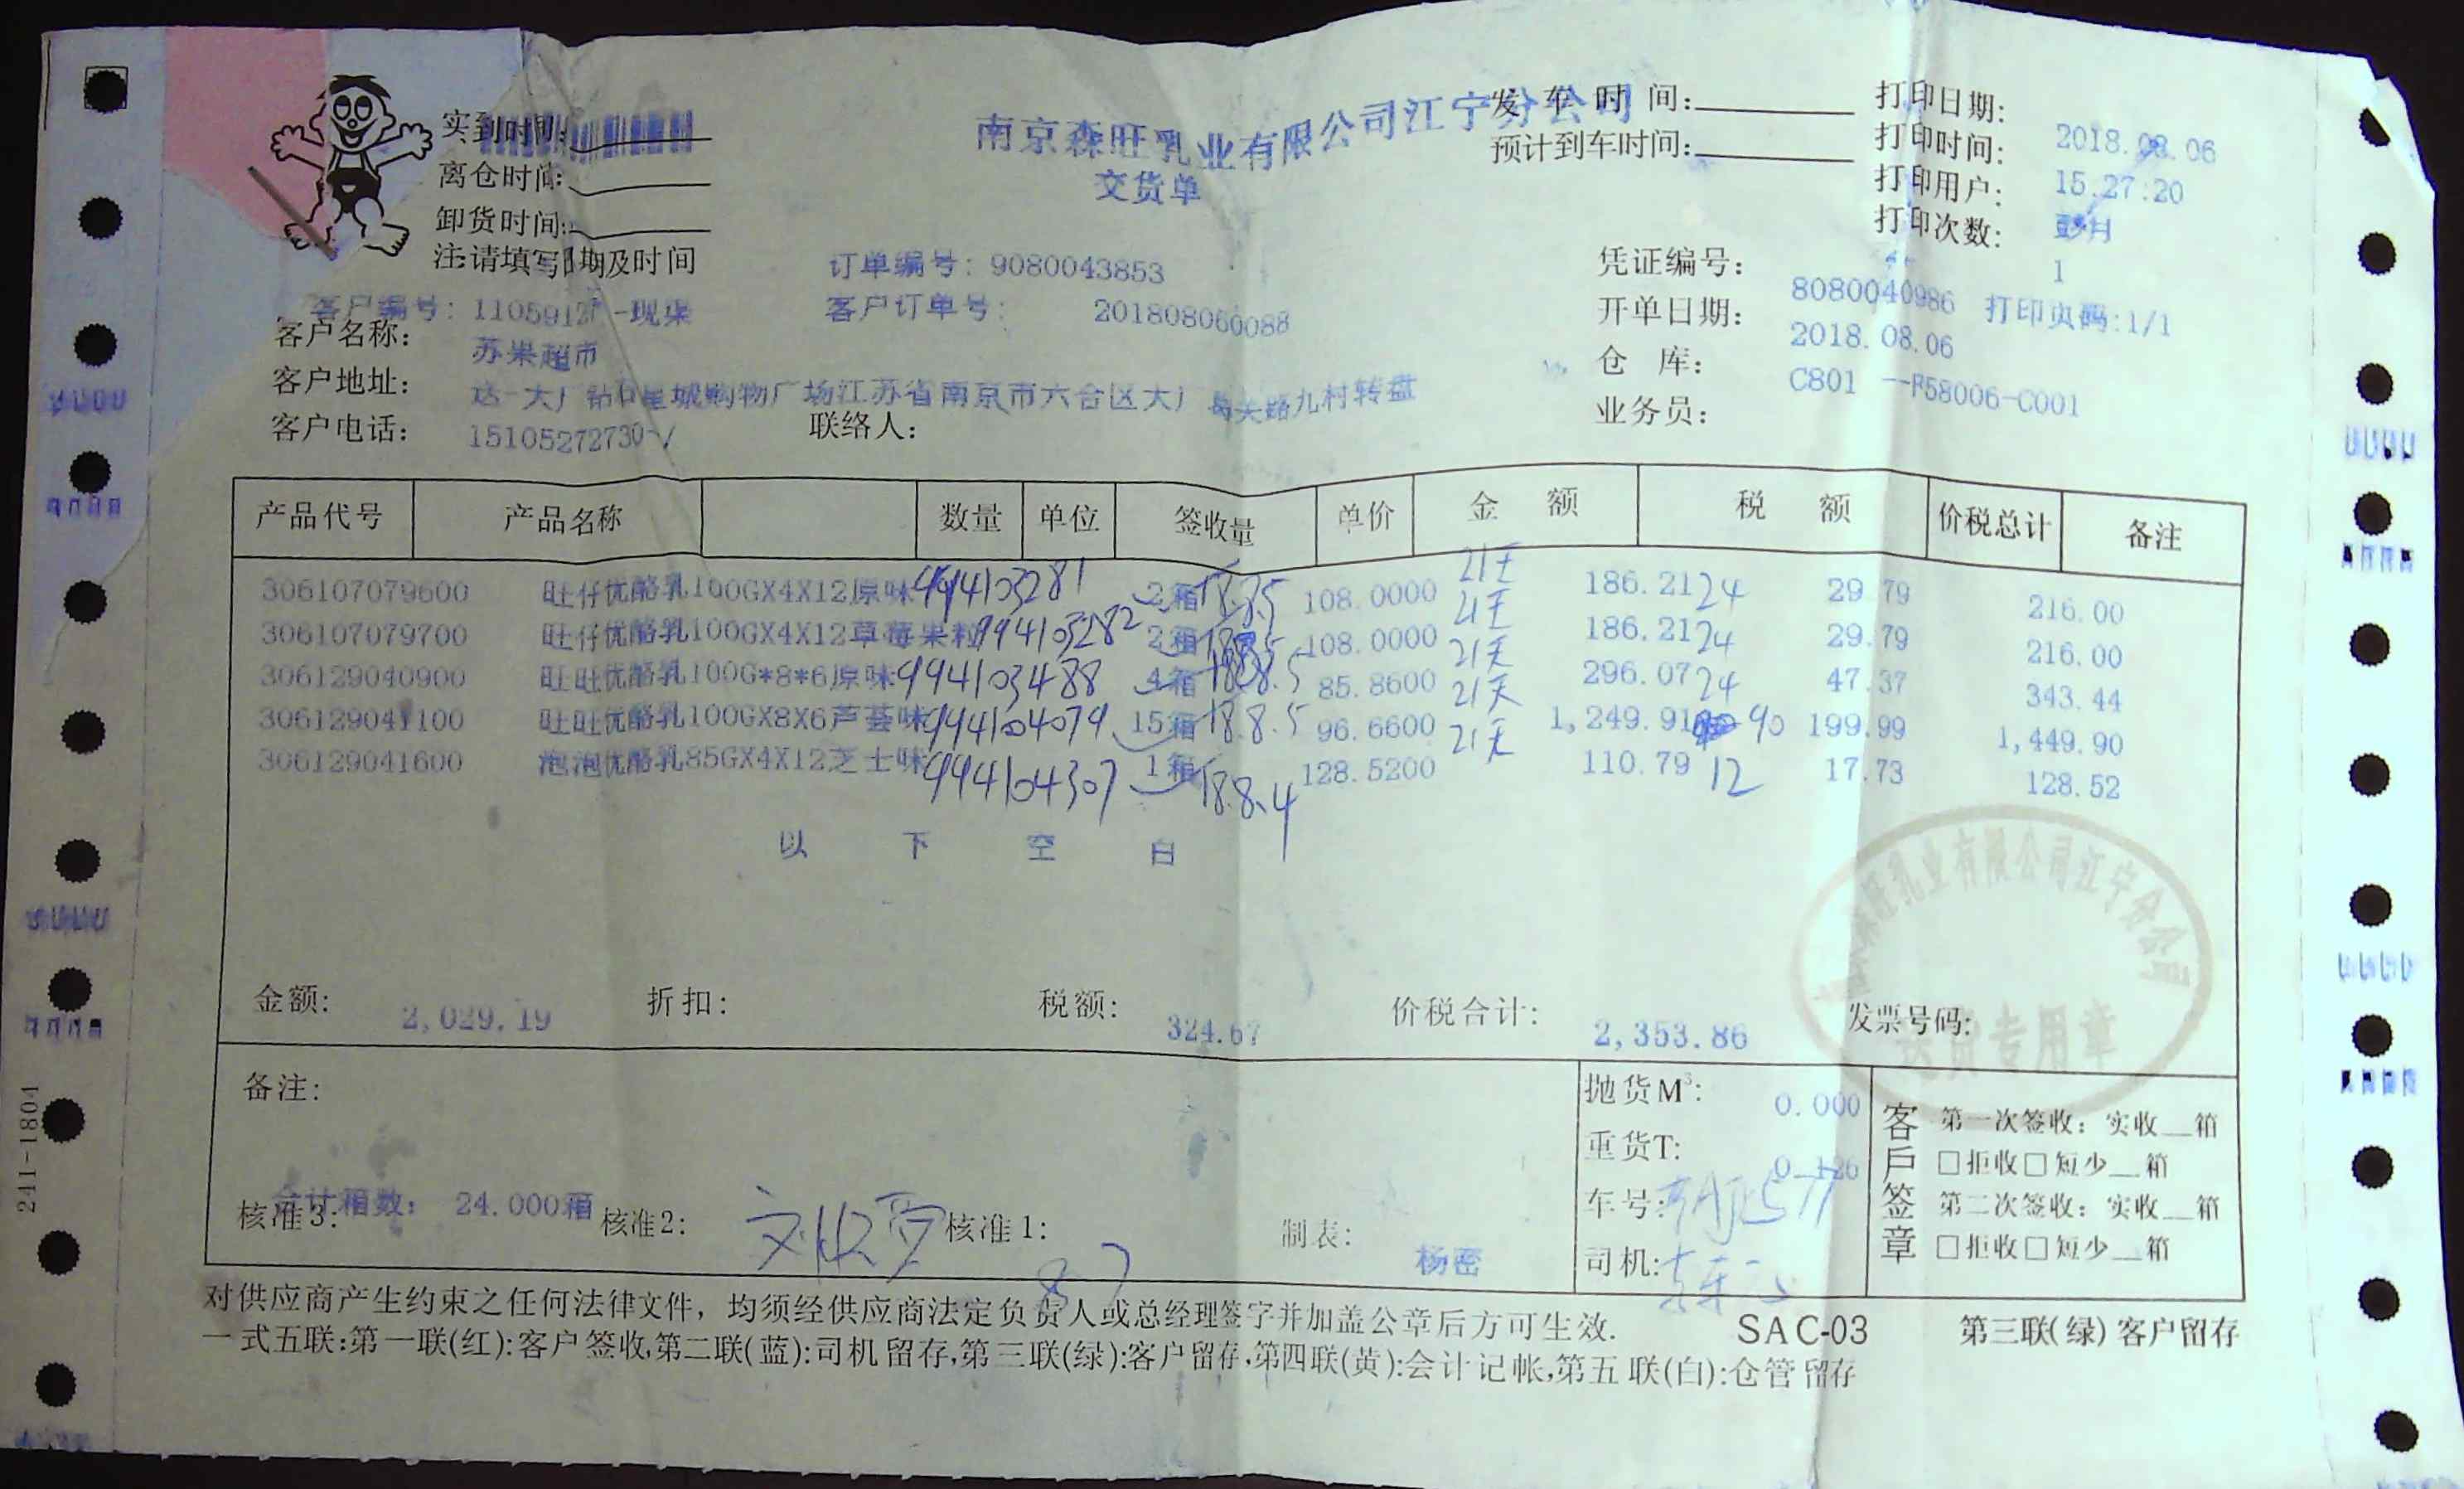 南京森旺乳业有限公司江宁分公司
交货单
实到时间:
离仓时间:
卸货时间:
注:请填写日期及时间
发车时间:
预计到车时间:
打印日期: 2018.08.06
打印时间: 15:27:20
打印用户: 彭月
打印次数: 1
订单编号: 9080043853
凭证编号: 8080040986 打印页码:1/1
客户编号: 客户订单号: 201808060088
开单日期: 2018.08.06
客户名称: 苏果超市
仓 库: C801
客户地址: 购物广场江苏省南京市六合区大厂葛关路九村转盘
业务员: R58006-C001
客户电话: 15105272730-/ 联络人:
产品代号 产品名称 数量 单位 签收量 单价 金 额 税 额 价税总计 备注
306107079600 旺仔优酪乳100GX4X12原味 994103281 2箱 18.8.5 108.0000 21天 186.21 24 29.79 216.00
306107079700 旺仔优酪乳100GX4X12草莓果粒 994103282 2箱 18.8.5 108.0000 21天 186.21 24 29.79 216.00
306129040900 旺旺优酪乳100G*8*6原味 994103488 4箱 18.8.5 85.8600 21天 296.07 24 47.37 343.44
306129041100 旺旺优酪乳100GX8X6芦荟味 994104079 15箱 18.8.5 96.6600 21天 1,249.91 90 199.99 1,449.90
306129041600 泡泡优酪乳85GX4X12芝士味 994104307 1箱 18.8.4 128.5200 21天 110.79 12 17.73 128.52
以 下 空 白
旺乳业有限公司江宁分公司
专用章
金额: 2,029.19 折扣: 税额: 324.67 价税合计: 2,353.86 发票号码:
备注:
抛货M³: 0.000
重货T: 0.126
合计箱数: 24.000箱
核准3: 核准2: 核准1: 8.7 制表: 杨密
车号:
司机:
客戶签章
第一次签收: 实收__箱
□拒收□短少__箱
第二次签收: 实收__箱
□拒收□短少__箱
对供应商产生约束之任何法律文件，均须经供应商法定负责人或总经理签字并加盖公章后方可生效.
SAC-03 第三联(绿)客户留存
一式五联:第一联(红):客户签收,第二联(蓝):司机留存,第三联(绿):客户留存,第四联(黄):会计记帐,第五联(白):仓管留存
241-1804